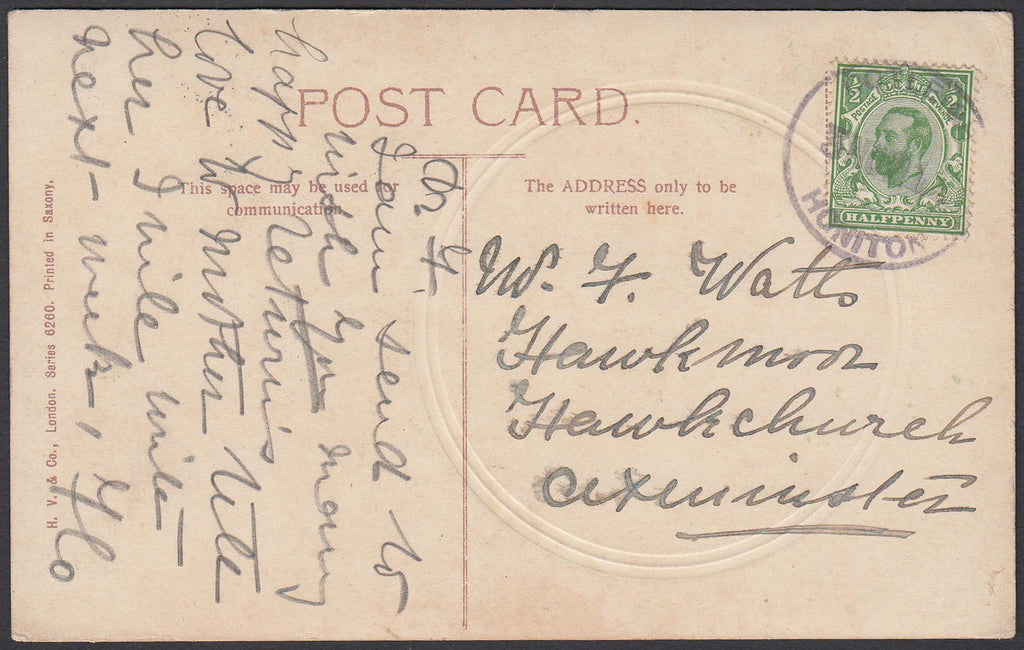 POST CARD.
This space may be used for
communication
The ADDRESS only to be
written here.
H. V. & Co., London. Series 6260. Printed in Saxony.
Dr. F.
I am send to
wish you many
happy returns
love to mother tell
her I will write
next week, Flo
Mr. F. Watts
Hawkmoor
Hawkchurch
Axminster
1/2 1/2
POSTAGE REVENUE
HALFPENNY
HONITON